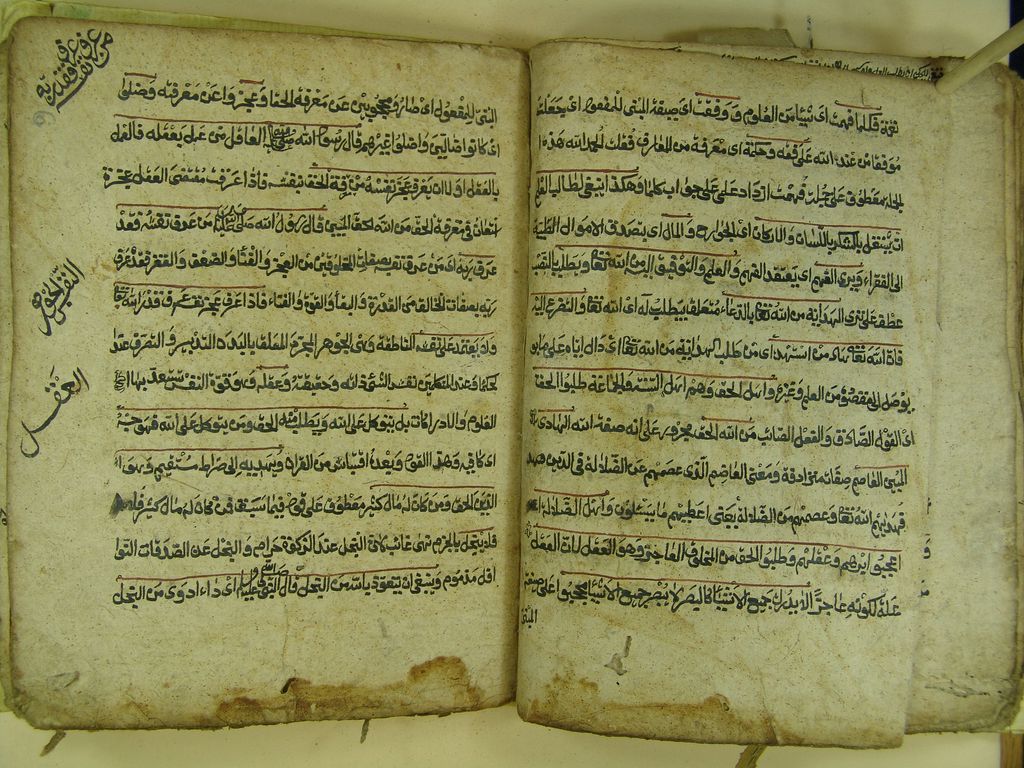 فكلما فهمت اي شيئا من العلوم ووقفت اي صيغة المبني للمفعول اي جعلت
موفقا من عند الله علي فقه وحكمة اي معرفة من المعارف فقلت الحمد لله هذه
الجملة معطوف علي جملة فهمت ازداد علي علي جواب كلما وهكذا ينبغي لطالب العلم
ان يشتغل بالشكر باللسان والاركان اي الجوارح والمال اي يتصدق الاموال الطيبة
الي الفقراء ويري الفهم اي يعتقد الفهم والعلم والتوفيق اليه من الله تعالي ويطلب بالنصب
عطف علي يري الهداية من الله تعالي بالدعاء متعلق بيطلب له اي الله تعالي والتضرع اليه
فان الله تعالي هاد من استهداه اي من طلب الهداية من الله تعالي اي دال اياه علي ما
يوصل الي مقصوده من العلم وغيره واهل الحق وهم اهل السنة والجماعة طلبوا الحق
اي القول الصادق والفعل الصائب من الله الحق مجرور علي انه صفة الله الهادي
المبين العاصم صفات مترادفة ومعني العاصم الذي عصمهم عن الضلالة في الدين
فهداهم الله تعالي وعصمهم من الضلالة يعني اعطيهم ما يسئلون واهل الضلالة
اعجبوا برأيهم وعقلهم وطلبوا الحق من المخلوق العاجز وهو العقل لان العقل
علة لكونه عاجزا لا يدرك جميع الاشياء كالبصر لا يبصر جميع الاشياء فحجبوا علي صيغة
المبني
المبني للمفعول اي صاروا محجوبين عن معرفة الحق وعجزوا عن معرفته وضلوا
اي كانوا ضالين واضلوا غيرهم قال رسول الله صلي الله العاقل من عمل بعقله فالعمل
بالعقل اولا ان يعرف عجز نفسه من معرفة الحق بنفسه فاذا عرف مقتضي العقل عجزه
استعان في معرفة الحق من الله الحق المبين قال رسول الله من عرف نفسه فقد
عرف ربه اي من عرف نفسه بصفات المخلوقين من العجز والفناء والضعف والفقر فقد عرف
ربه بصفات الخالق من القدرة والبقاء والقوة والغناء فاذا عرف عجز نفسه عرف قدرة الله تعالي
ولا يعتمد علي نفسه الناطقة وهي الجوهر المجرد المتعلق بالبدن التدبير والتصرف عند
الحكماء وعند المتكلمين نفس الشئ ذاته وحقيقته وعقله وهو قوة النفس تستعد بها
العلوم والادراكات بل يتوكل علي الله ويطلب منه الحق ومن يتوكل علي الله فهو حسبه
اي كافيه وهذا القول وبعده اقتباس من القرآن ويهديه الي صراط مستقيم وهو
الدين الحق ومن كان له مال كثير معطوف علي قوله فيما سبق فمن كان له مال كثير
فلا يبخل بالجزم نهي غائب لان البخل عند الزكوة حرام والبخل عن الصدقات النوافل
اقل مذموم وينبغي ان يتعوذ بالله من البخل قال النبي عليه السلام اي داء ادوي من البخل
من عرف نفسه فقد عرف ربه
النفس الجوهر
العقل